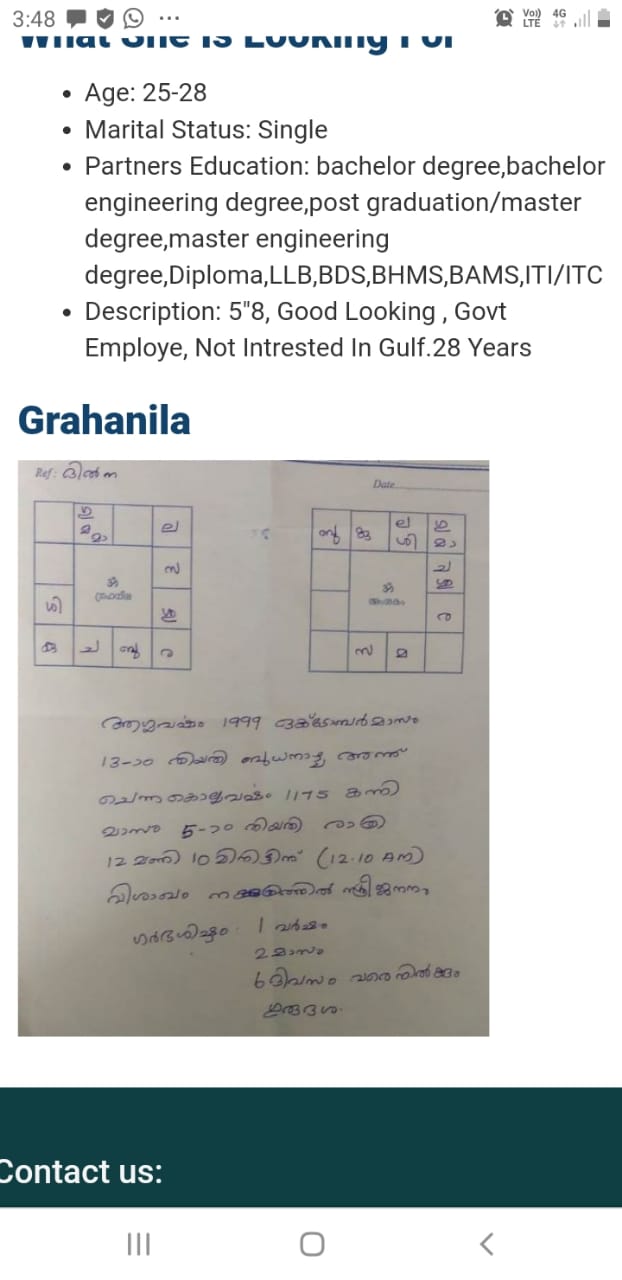 3:48
Vo)) LTE 4G
What She is Looking For
Age: 25-28
Marital Status: Single
Partners Education: bachelor degree,bachelor
engineering degree,post graduation/master
degree,master engineering
degree,Diploma,LLB,BDS,BHMS,BAMS,ITI/ITC
Description: 5"8, Good Looking , Govt
Employe, Not Intrested In Gulf.28 Years
Grahanila
Ref:
Date
ല
സ
ശി
ച
ര
ഓം
ല
ശി
ച
ര
ഓം
സ
1999
13-ാം തിയതി ബുധനാഴ്ച
1175 കന്നി
മാസം 5-ാം തിയതി രാത്രി
12 മണി 10 മിനിട്ടിന് (12.10 AM)
വിശാഖം സ്ത്രീജനനം
ഗർഭശിഷ്ടം 1 വർഷം
2 മാസം
6 ദിവസം
Contact us: